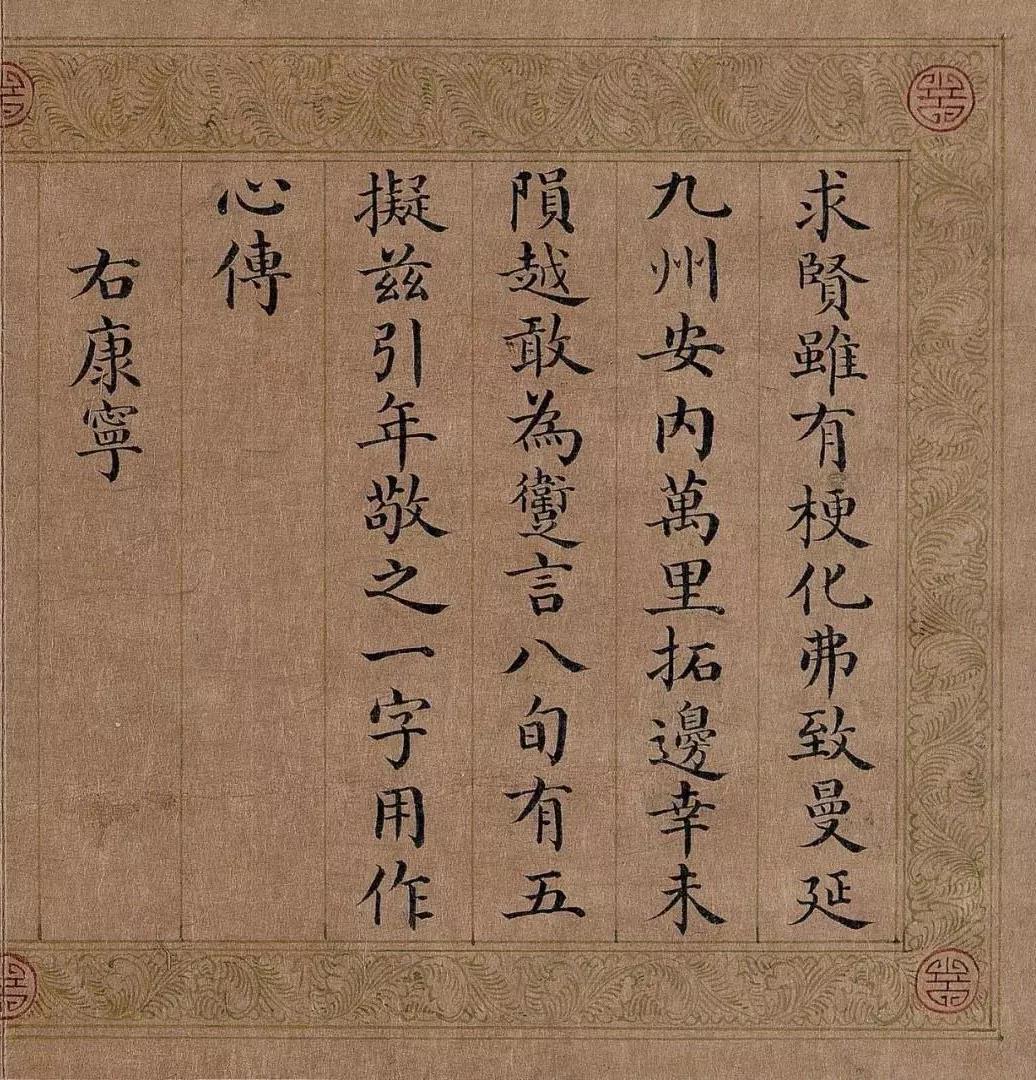 求賢雖有梗化弗致曼延
九州安内萬里拓邊幸未
隕越敢為躗言八旬有五
擬兹引年敬之一字用作
心傳
右康寧